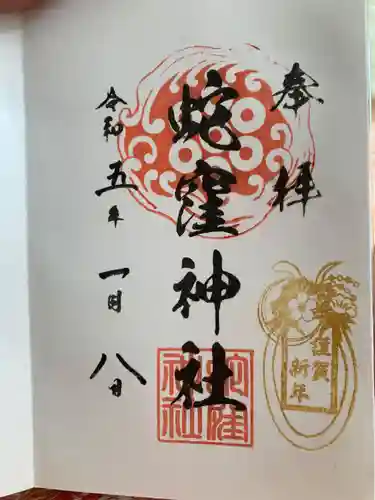 奉拝
蛇窪神社
令和五年一月八日
蛇窪神社
謹賀新年